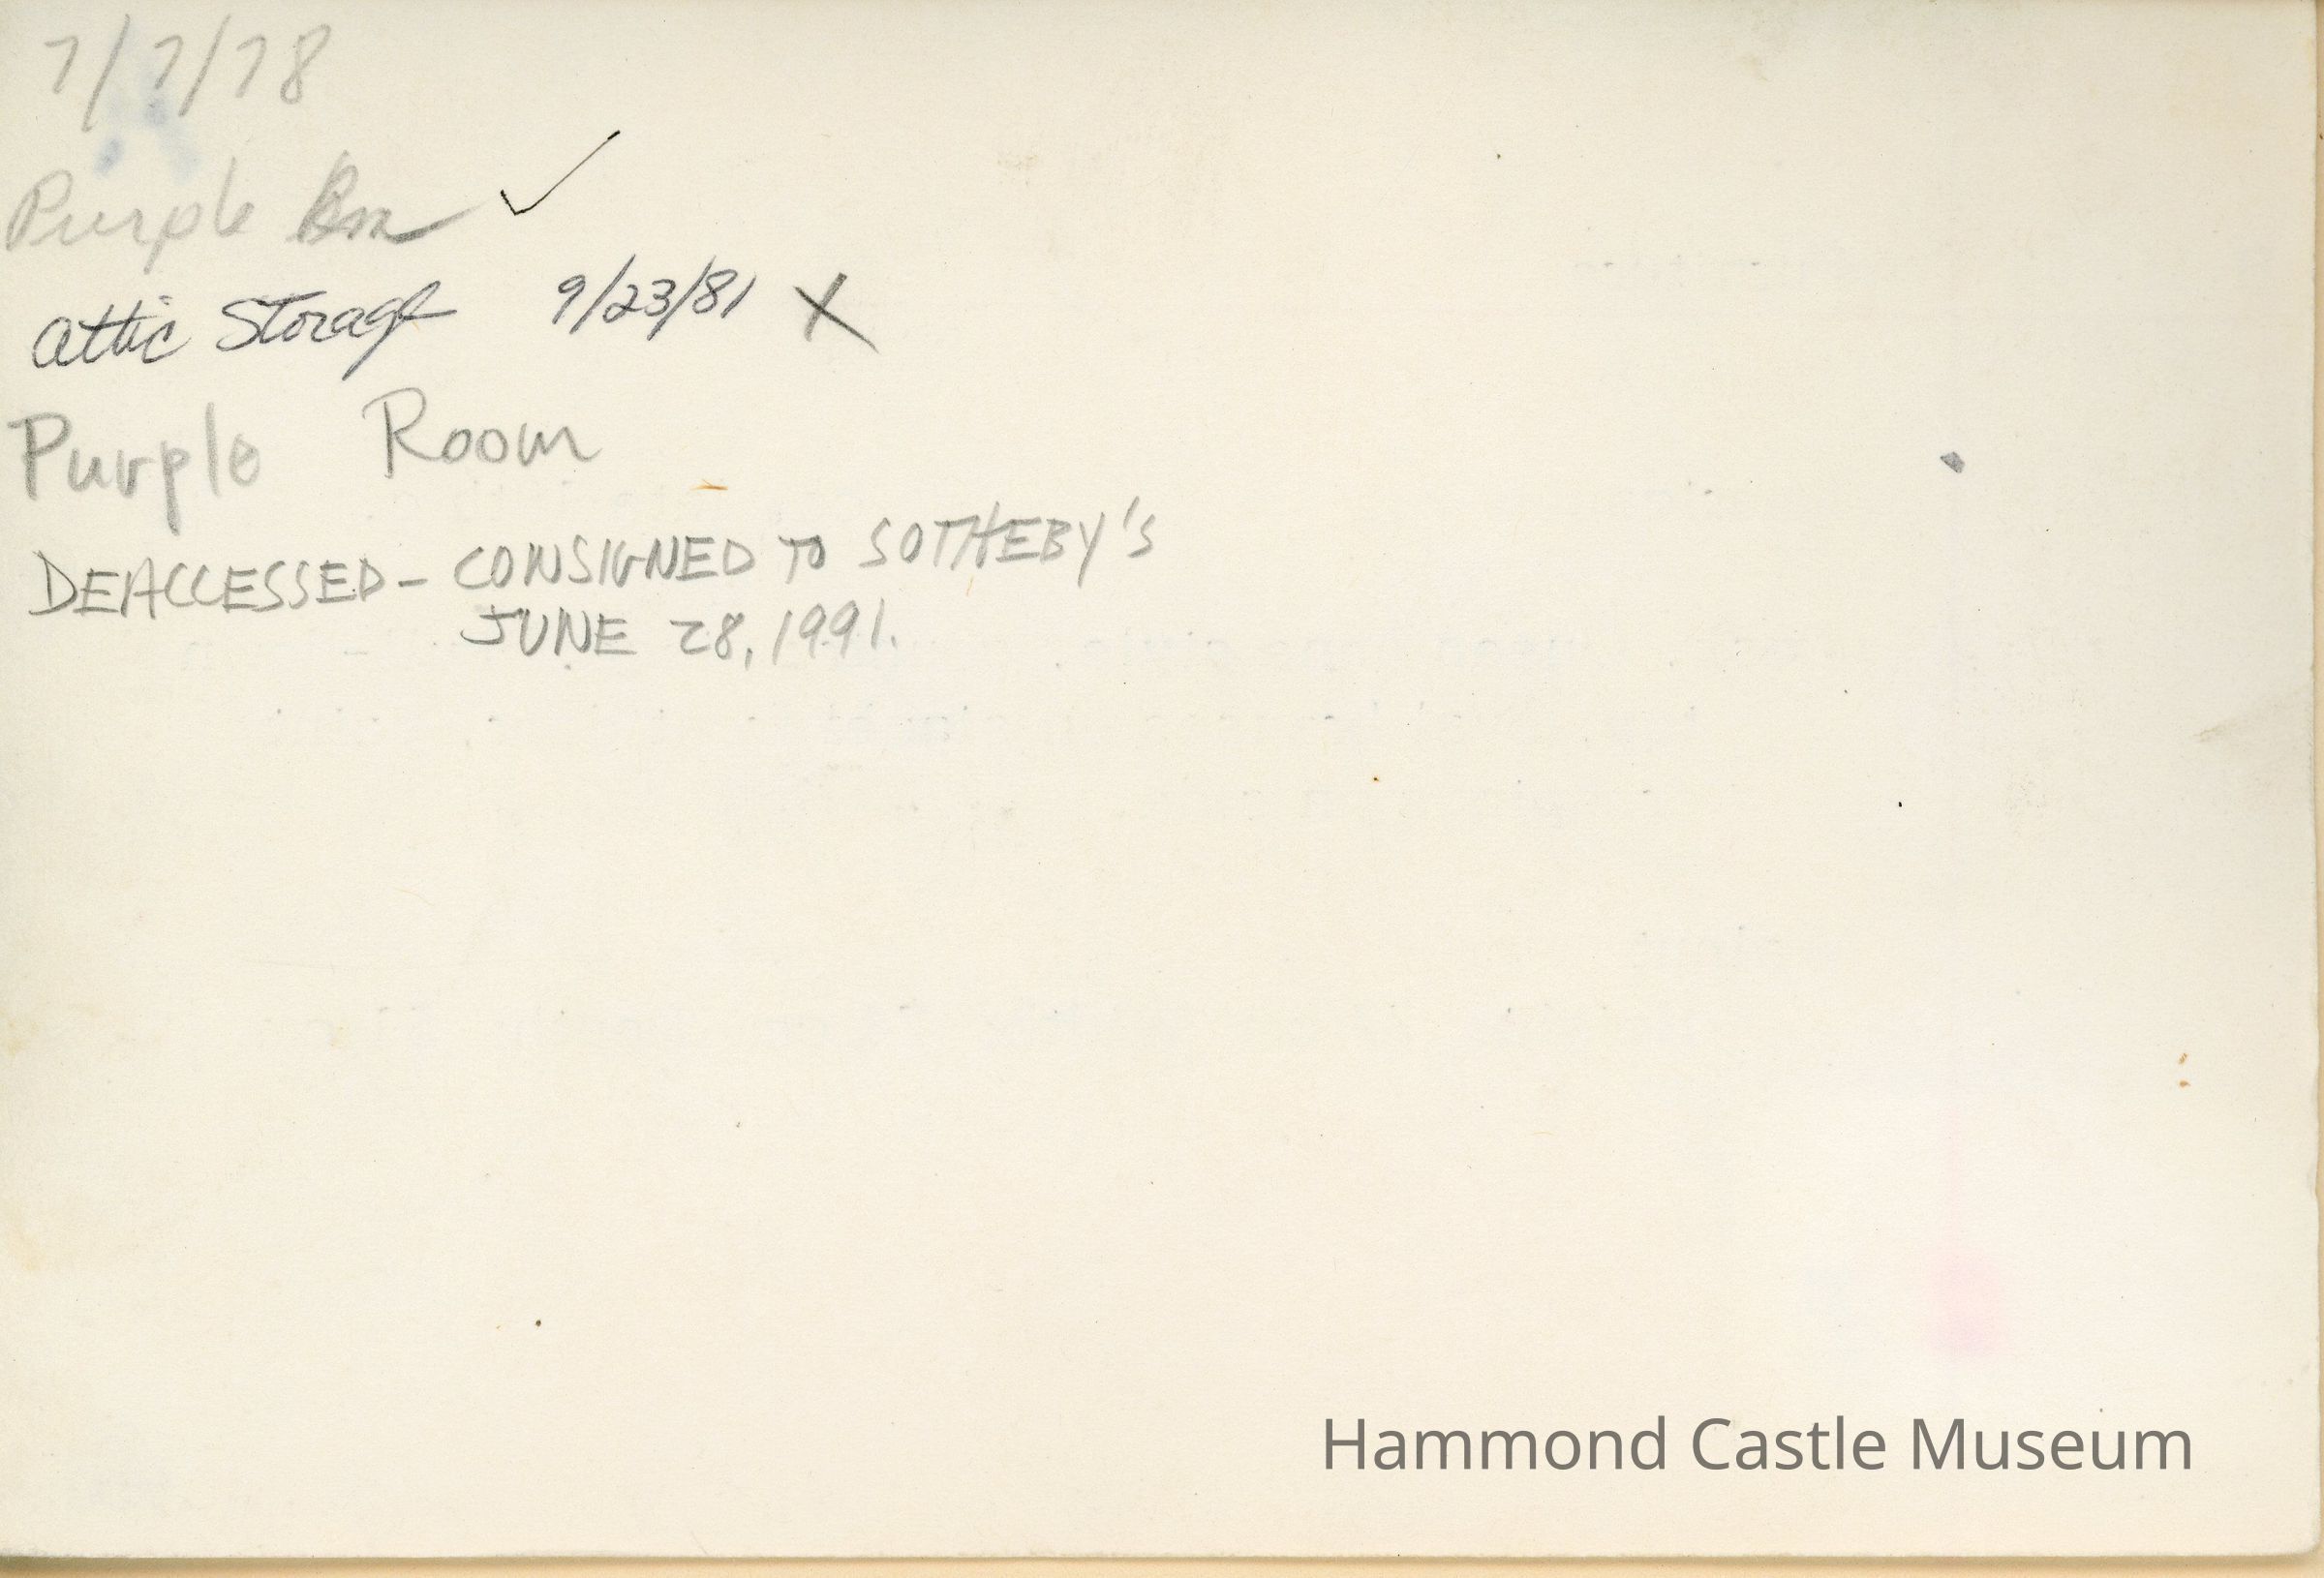 7/7/78
Purple Rm ✓
Attic Storage 9/23/81 X
Purple Room
DEACCESSED - CONSIGNED TO SOTHEBY'S
JUNE 28, 1991.
Hammond Castle Museum